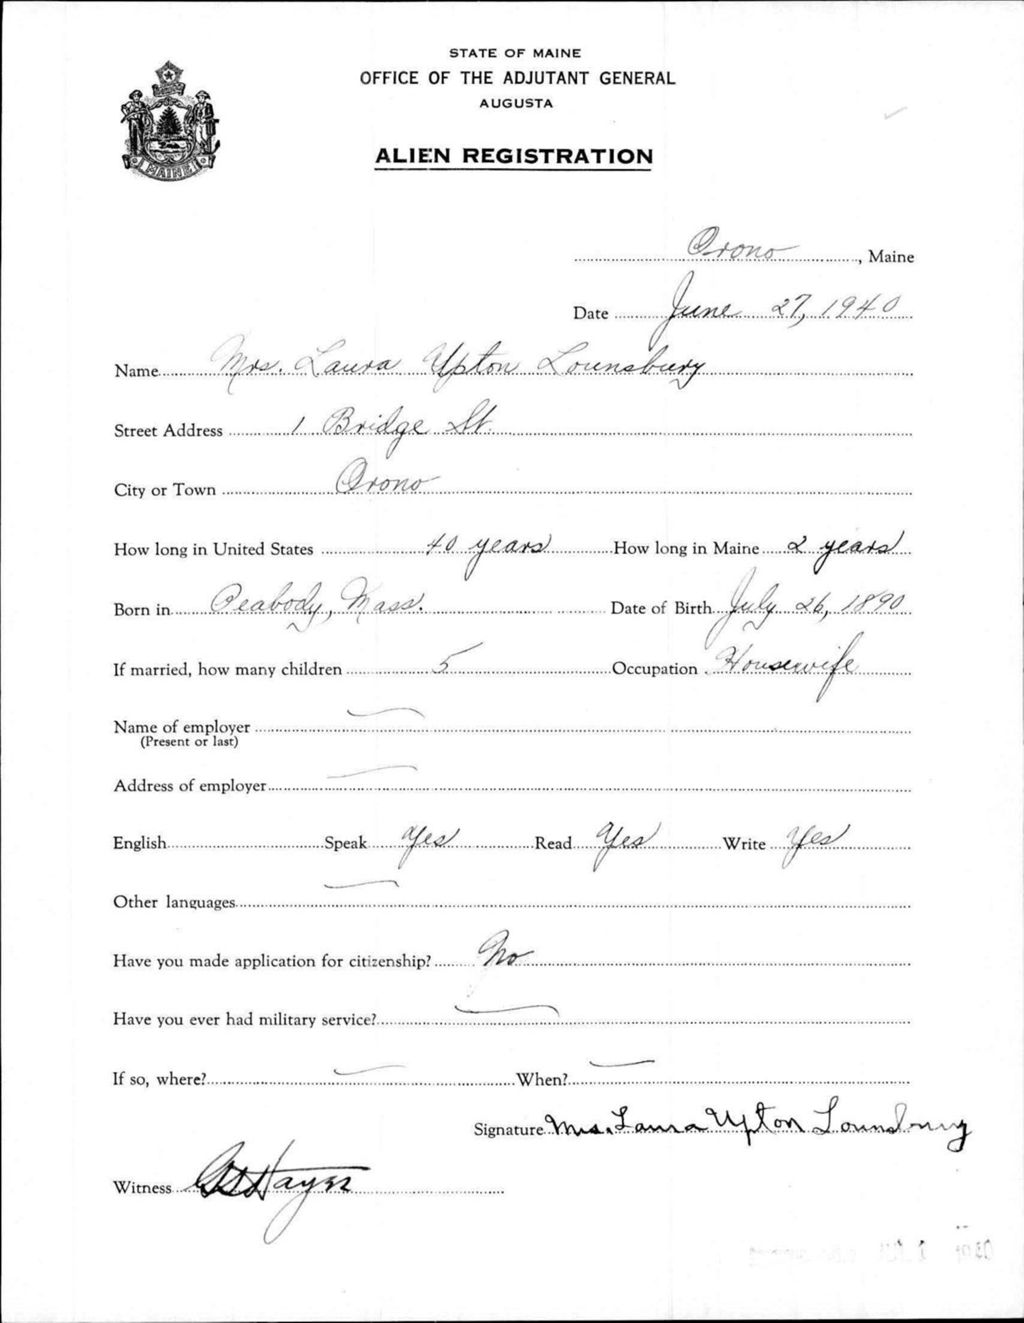 STATE OF MAINE
OFFICE OF THE ADJUTANT GENERAL
AUGUSTA
ALIEN REGISTRATION
MAINE
Orono, Maine
Date June 27, 1940
Name Mrs. Laura Upton Lounsbury
Street Address 1 Bridge St.
City or Town Orono
How long in United States 40 years How long in Maine 2 years
Born in Peabody, Mass. Date of Birth July 26, 1890
If married, how many children 5 Occupation Housewife
Name of employer
(Present or last)
Address of employer
English Speak Yes Read Yes Write Yes
Other languages
Have you made application for citizenship? No
Have you ever had military service?
If so, where? When?
Signature Mrs. Laura Upton Lounsbury
Witness Hayes